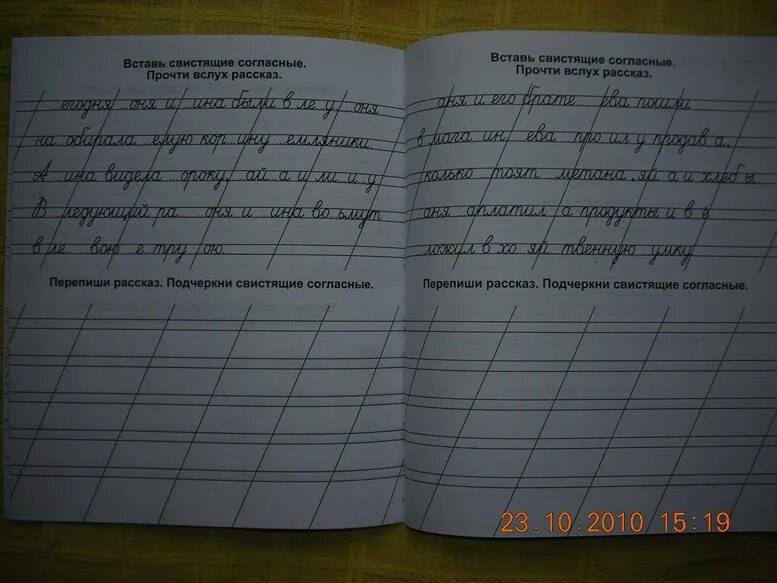 Вставь свистящие согласные.
Прочти вслух рассказ.
егодня оня и ина были в ле у оня
на обирала елую кор ину емляники.
А ина видела ороку, ай а и ли и у
В ледующий ра оня и ина во ьмут
в ле вою е тру ою.
Перепиши рассказ. Подчеркни свистящие согласные.
Вставь свистящие согласные.
Прочти вслух рассказ.
аня и его брате ева пошли
в мага ин, ева про ил у продав а.
колько тоят метана, яй а и хлебы.
аня аплатил а продукты и в ё
ложил в хо яй твенную умку
Перепиши рассказ. Подчеркни свистящие согласные.
23.10.2010 15:19